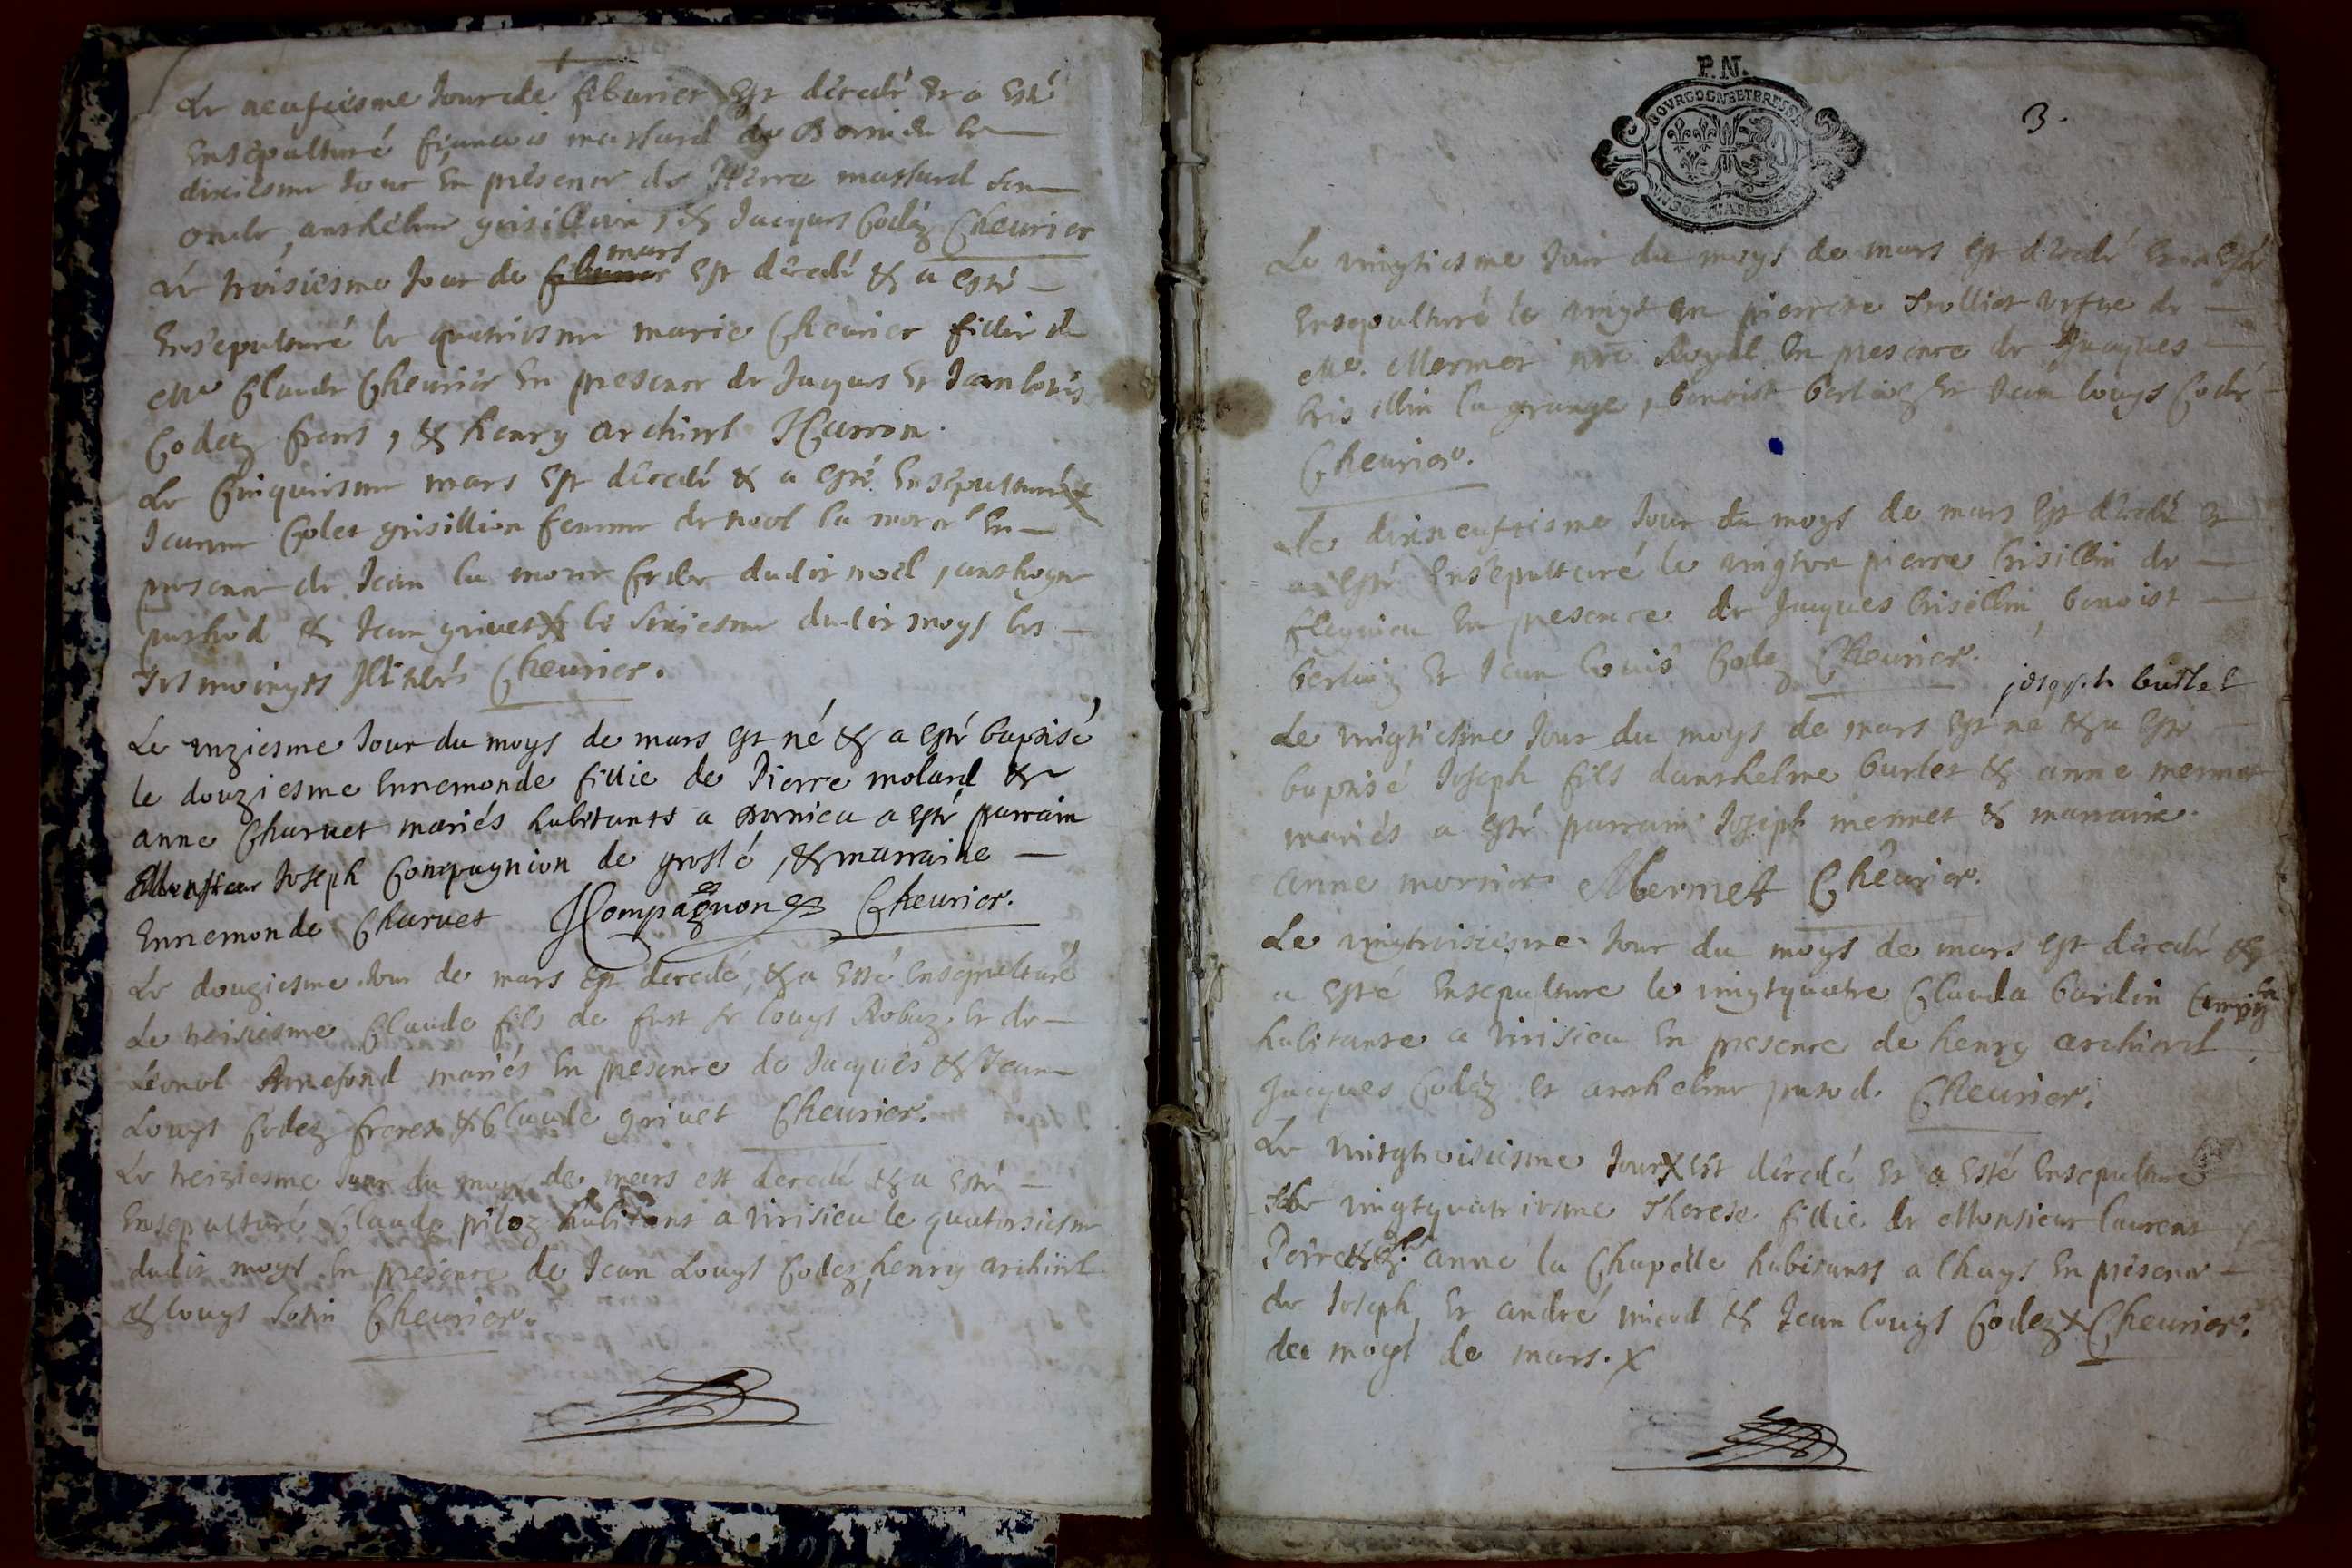 Le neufiesme Jour de feburier Est décedé Et a Esté
Ensépulturé françois massard de
dixiesme Jour En présence de Pierre massard son
oncle, anthelme grisillion, & Jacques Godez Cheurier
Le troisiesme Jour de mars Est décedé & a esté
Ensépulturé le quatriesme marie Cheurier fillie de
me Claude Cheurier En presence de Jaques Et Jean louis
Godez freres, & henry archinel
Le Cinquiesme mars Est décedé & a esté Ensépulturé X
Jeanne Godet grisillion femme de noel la more En
presence de Jean la more dudit noel,
& Jean grivet X le sixiesme dudit moys les
Cheurier.
Le unziesme Jour du moys de mars est né & a esté baptisé
le douziesme Ennemonde fillie de Pierre molard &
anne Charvet mariés habitants a a esté parrain
Monsieur Joseph Compagnion de , & marraine
Ennemonde Charvet JCompagnon Cheurier.
Le douziesme Jour de mars Est decedé, & a Esté Ensepulturé
Le treisiesme Claude fils de Sr louys Robaz Et de
mariés En presence de Jacques & Jean
Louys Godez freres & Claude grivet Cheurier.
Le treiziesme Jour du moys de mars est decedé & a esté
Ensepulturé Claude piloz habitant a virisieu le quatorsiesme
dudit moys En presence de Jean Louys Godez, henry archinel
& louys Cheurier.
P.N.
BOURGOGNE ET BRESSE
3.
Le vingtiesme Jour du moys de mars Est décedé Et a Esté
Ensepulturé le vingt un pierrette Trolliet vefve de
Me. Mermet Royal En presence de Jacques
la grange, benoist berlioz Et Jean louys Godé
Cheurier.
le dixneufiesme Jour du moys de mars Est décedé Et
a Esté Ensépulturé le vingtun pierre brisillin de
En presence de Jacques brisillin, benoist
Et Jean Louis Godez Cheurier.
joseph burlet
Le vingtiesme Jour du moys de mars Est né & a Esté
baptisé Joseph fils danthelme burlet & anne mermet
mariés a esté parrain Joseph mermet & marraine
anne Mermet Cheurier.
Le vingtroisiesme Jour du moys de mars Est décedé &
a Esté Ensepulture le vingtquatre Clauda bardin
habitante a virisieu En presence de henry archinel
Jacques Godez et anthelme Cheurier.
Le vingttroisiesme Jour X Est décedé Et a Esté Ensepulturé
le vingtquatriesme Therese fillie de Monsieur laurens
anne la Chapelle habitants a En présence
de Joseph Et andré & Jean louys Godez X Cheurier.
du moys de mars. X